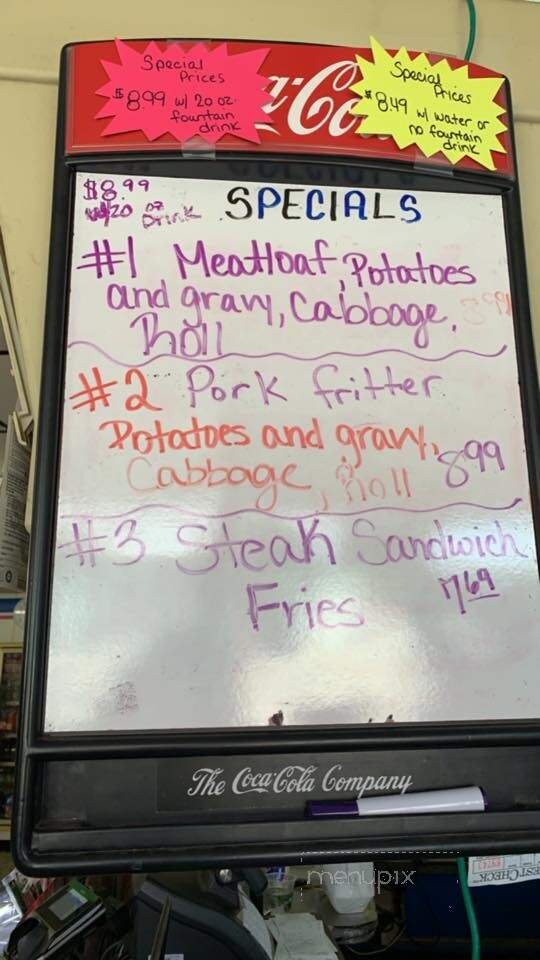 Special
Prices
$8.99 w/ 20 oz.
fountain
drink
Special
Prices
$8.49 w/ water or
no fountain
drink
$8.99
w/20 oz
Drink
SPECIALS
#1 Meatloaf, Potatoes
and gravy, Cabbage,
Roll
8.99
#2 Pork fritter
Potatoes and gravy,
Cabbage, Roll 8.99
#3 Steak Sandwich
Fries 7.69
The Coca-Cola Company
menupix